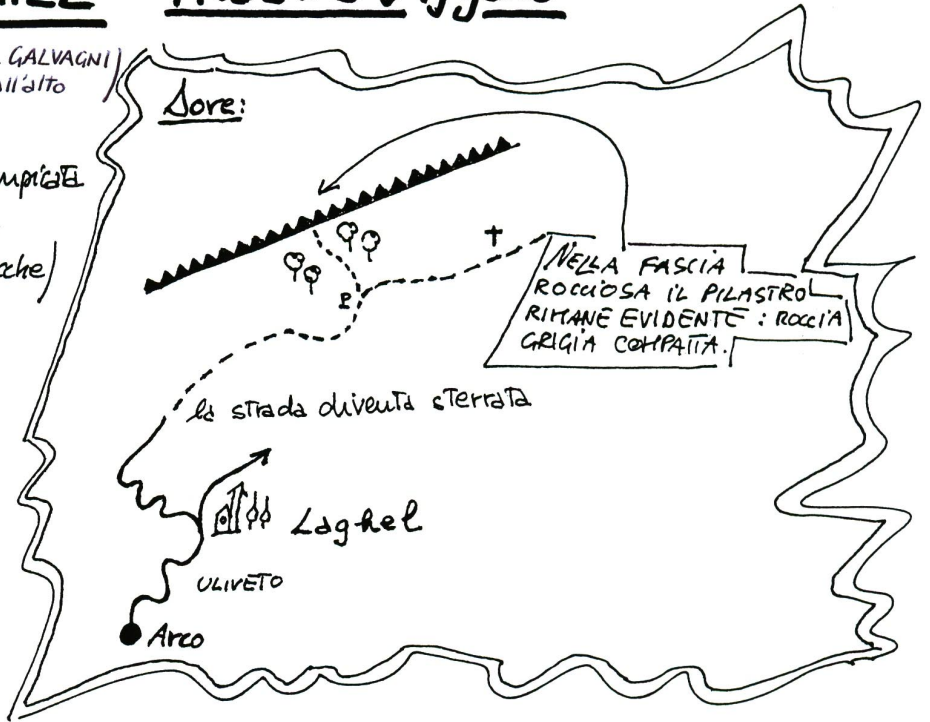 GALVAGNI)
all'alto
Dove:
cche)
NELLA FASCIA
ROCCIOSA IL PILASTRO
RIMANE EVIDENTE : ROCCIA
GRIGIA COMPATTA.
P
la strada diventa sterrata
Laghel
ULIVETO
Arco